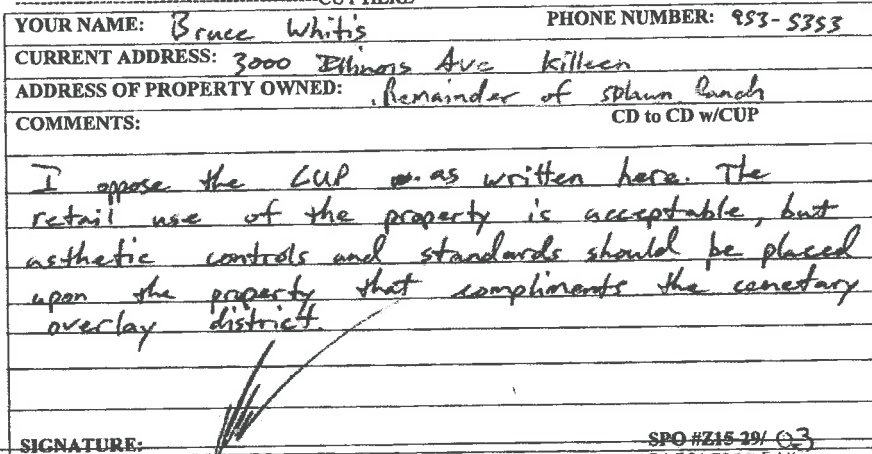 YOUR NAME: Bruce Whitis PHONE NUMBER: 953-5353
CURRENT ADDRESS: 3000 Illinois Ave Killeen
ADDRESS OF PROPERTY OWNED: Remainder of splawn Ranch
CD to CD w/CUP
COMMENTS:
I oppose the CUP as written here. The
retail use of the property is acceptable, but
asthetic controls and standards should be placed
upon the property that compliments the cemetary
overlay district.
SIGNATURE: SPO #Z15-29/ 03